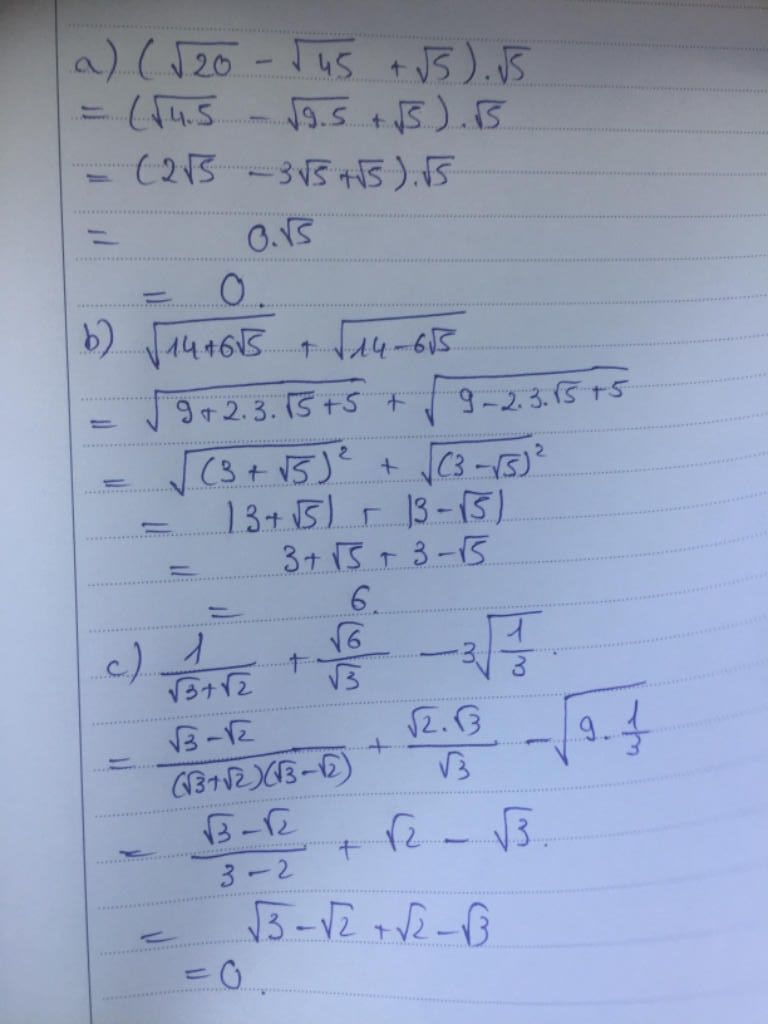 a) (√20 - √45 + √5).√5
= (√4.5 - √9.5 + √5).√5
= (2√5 - 3√5 + √5).√5
= 0.√5
= 0.
b) √(14+6√5) + √(14-6√5)
= √(9+2.3.√5+5) + √(9-2.3.√5+5)
= √(3+√5)² + √(3-√5)²
= |3+√5| + |3-√5|
= 3+√5 + 3-√5
= 6.
c) 1/(√3+√2) + √6/√3 - 3√(1/3).
= (√3-√2)/((√3+√2)(√3-√2)) + (√2.√3)/√3 - √(9.1/3)
= (√3-√2)/(3-2) + √2 - √3.
= √3-√2+√2-√3
= 0.